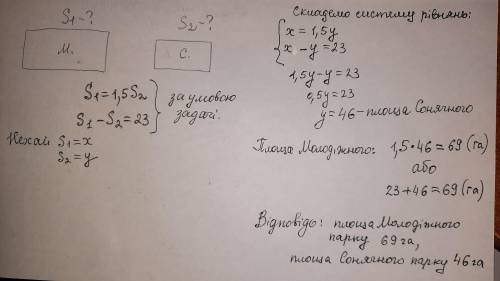 S₁-?
S₂-?
М.
С.
S₁=1,5S₂
S₁-S₂=23
за умовою
задачі.
Нехай S₁=x
S₂=y
Складемо систему рівнянь:
x=1,5y
x-y=23
1,5y-y=23
0,5y=23
y=46-площа Сонячного
Площа Молодіжного: 1,5·46=69(га)
або
23+46=69(га)
Відповідь: площа Молодіжного
парку 69га,
площа Сонячного парку 46га